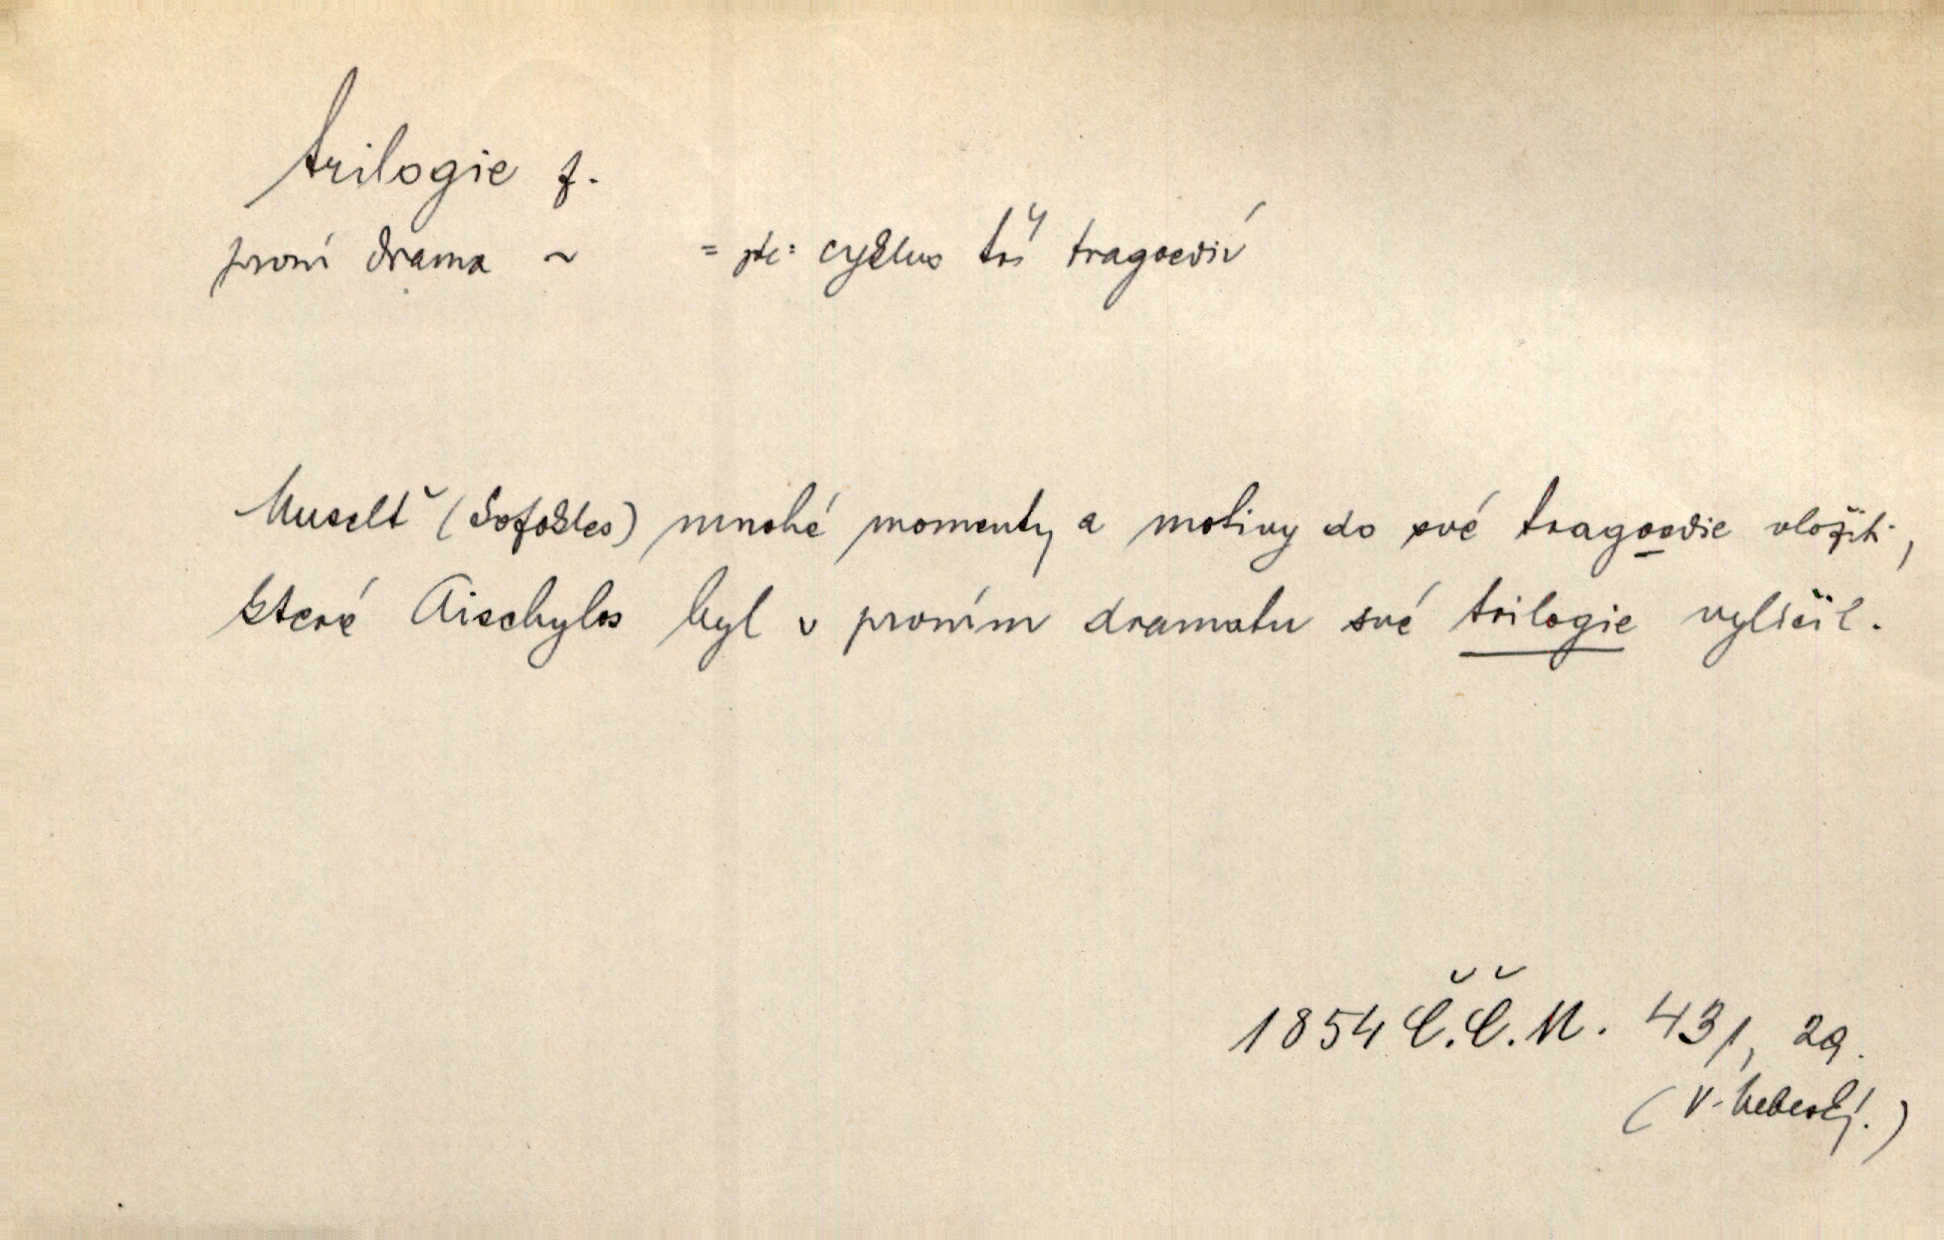 trilogie f.
první drama ~ = cyklus tří tragoedií
Museltě (Sofokles) mnohé momenty a motivy do své tragoedie vložiti,
které Aischylos byl v prvním dramatu své trilogie vylíčil.
1854 Č.Č.M. 431, 29.
(V. Nebeský.)